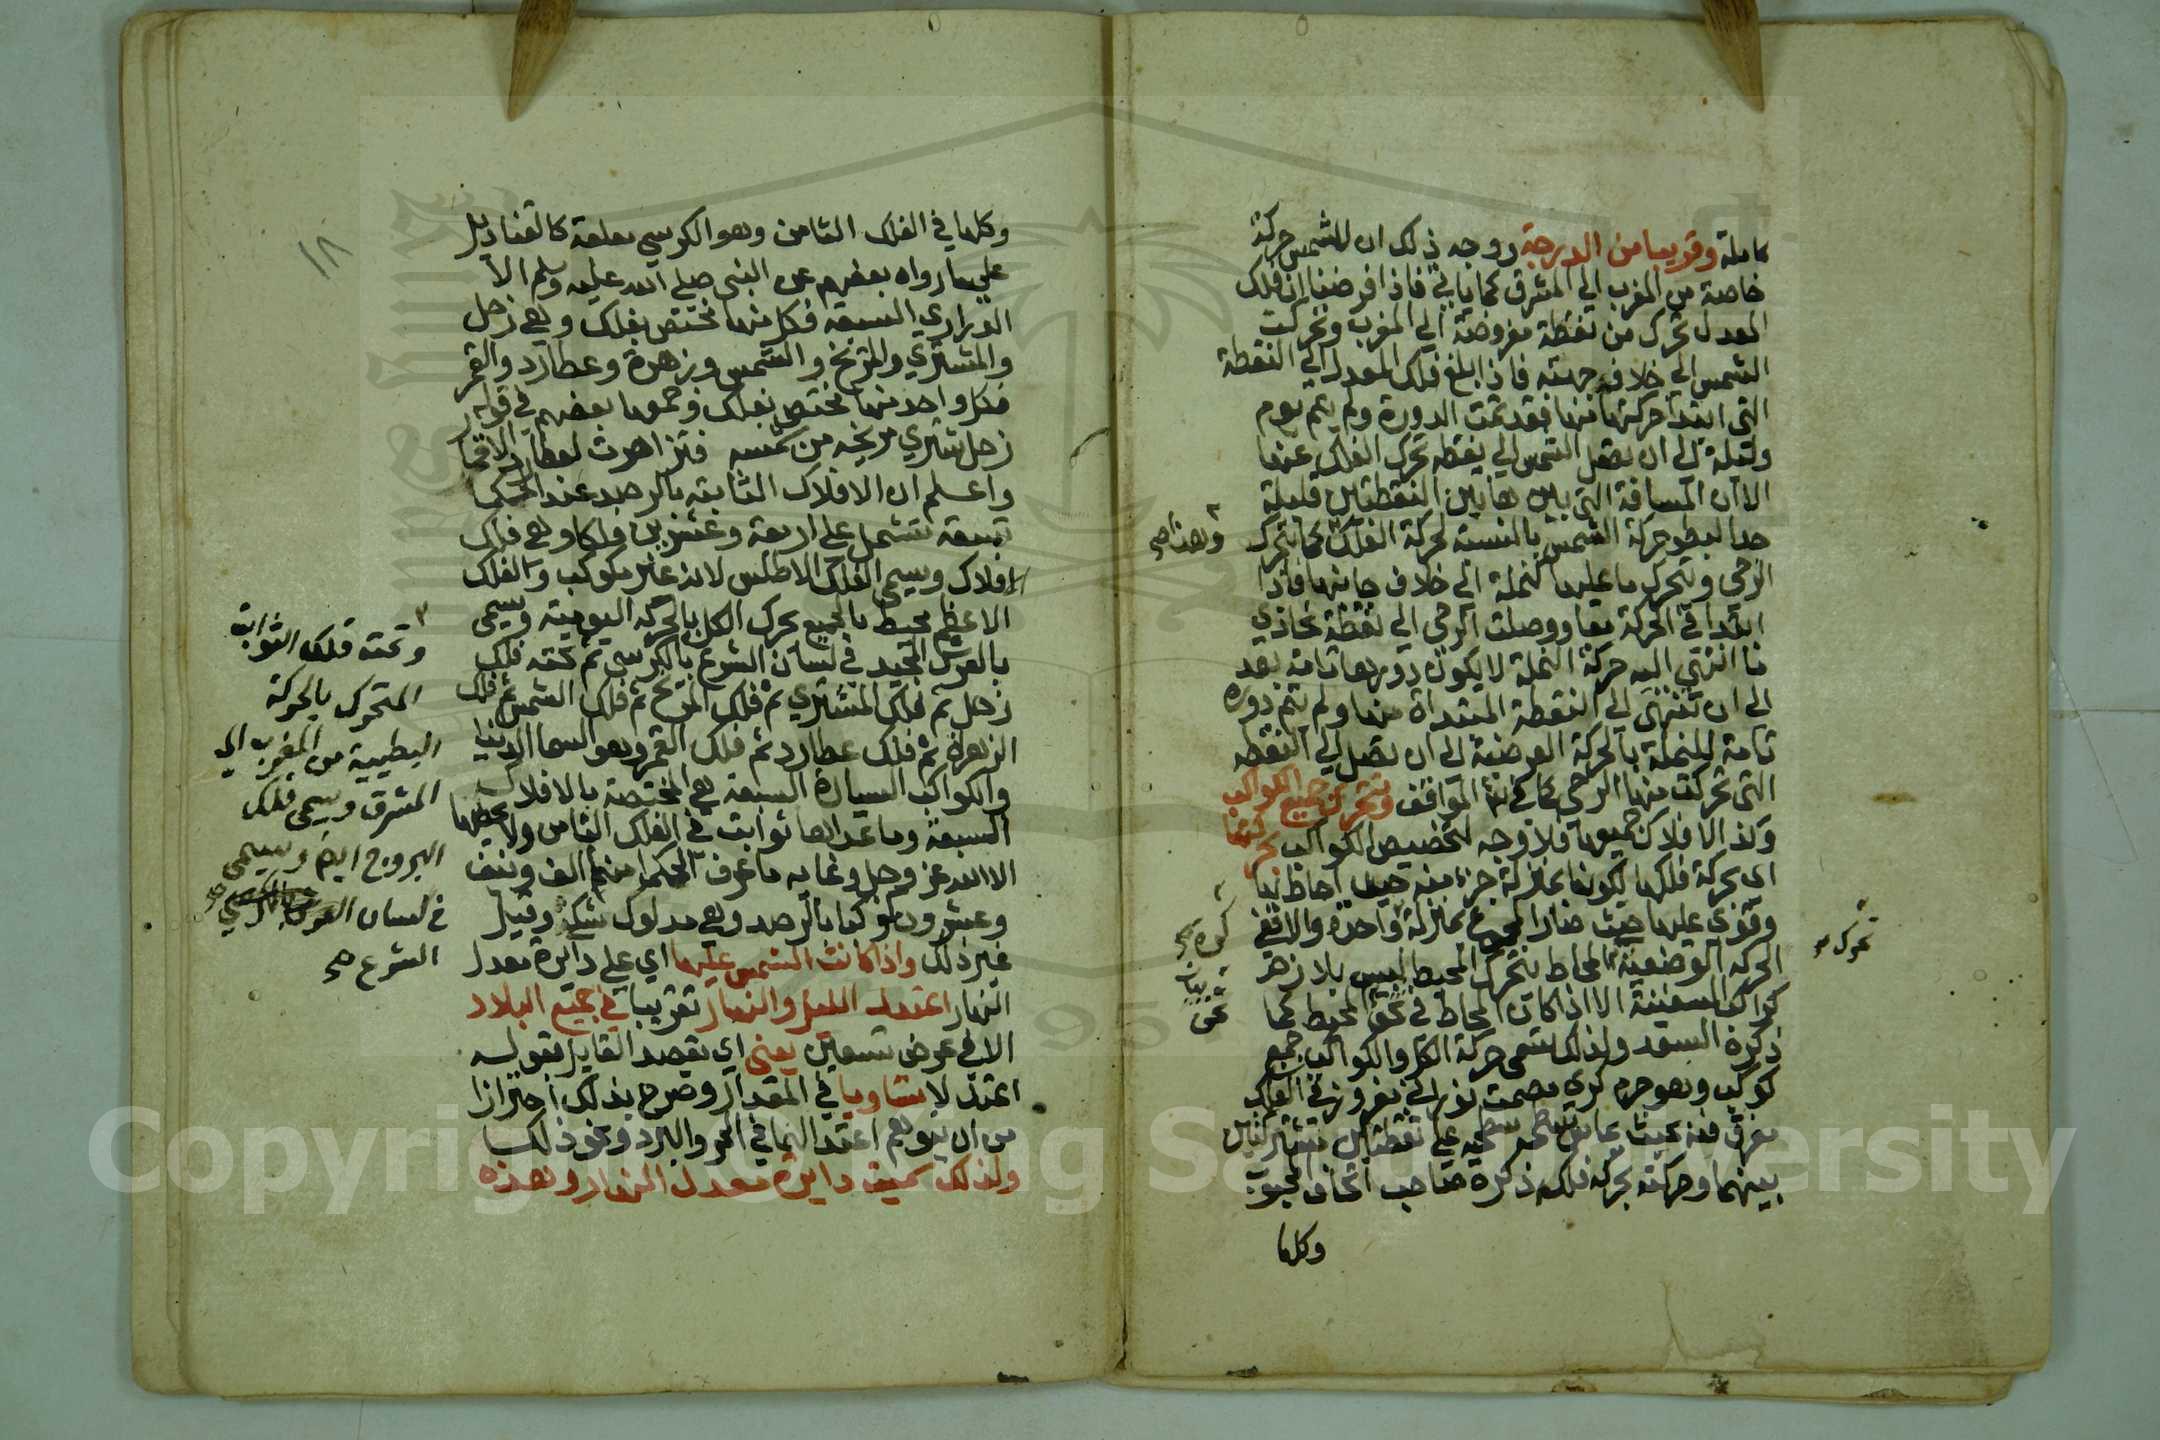 كاملة وقريبا من الدرجة ووجه ذلك ان للشمس حركة
خاصة من المغرب الى المشرق كما ياتي فاذا فرضنا ان فلك
المعدل تحرك من نقطة مفروضة الي المغرب وتحركت
الشمس الى خلاف جهته فاذا بلغ فلك المعدل الي النقطة
التي ابتدا حركتها منها فقد تمت الدورة ولم يتم يوم
وليلة الى ان تصل الشمس الي نقطة تحرك الفلك عنها
الا ان المسافة التي بين هاتين النقطتين قليلة
جدا لبطو حركة الشمس بالنسبة لحركة الفلك كما تتحرك
الرحى ويتحرك ما عليها كنملة الى خلاف جانبها فاذا
ابتدا في الحركة معا ووصلت الرحى الى نقطة تحاذي
ما انتهي اليه حركة النملة لا يكون دورها تامة بعد
الى ان تنتهي الى النقطة المبتداة منها ولم يتم دورة
تامة للنملة بالحركة العرضية الى ان تصل الى النقطة
التي تحركت منها الرحى كما في المواقف وتتحرك جميع الكواكب
وكذا الافلاك جميعها فلا وجه لتخصيص الكواكب بحركتها
اي بحركة فلكها لكونها بمنزلة جزء منه حيث احاط بها
وقوي عليها حيث صارا المجموع بمنزلة واحدة والا ففي
الحركة الوضعية المحاط بتحرك المحيط ليس بلازم
كراكب السفينة الا اذا كان المحاط في المحيط كما
ذكره السعد ولذلك تسمى حركة الكل والكواكب جمع
كوكب وهو جرم كري مصمت نوراني مغروز في الفلك
مغرق فيه بحيث يماس سطحه سطحيه على نقطتين مشتركتين
بينهما وحركته بحركة فلكه ذكره صاحب
وكلها
وهنا صح
تحرك صح
كرة
وكلها في الفلك الثامن وهو الكرسي معلقة كالقناديل
علي ما رواه بعضهم عن النبي صلي الله عليه وسلم الا
الدراري السبعة فكل منها مختص بفلك وهي زحل
والمشتري والمريخ والشمس وزهرة وعطارد والقمر
فكل واحد منها مختص بفلك وجمعها بعضهم في قوله
زحل شتري مريخه من شمسه فتزاهرت لعطارد الاقمار
واعلم ان الافلاك الثابتة بالرصد عند الحكما
تسعة تشتمل علي اربعة وعشرين فلكا وهي فلك
الافلاك ويسمى الفلك الاطلس لانه غير مكوكب والفلك
الاعظم محيط بالجميع يحرك الكل بالحركة اليومية ويسمى
بالعرش المجيد في لسان الشرع بالكرسي ثم تحته فلك
زحل ثم فلك المشتري ثم فلك المريخ ثم فلك الشمس ثم فلك
الزهرة ثم فلك عطارد ثم فلك القمر وهو السما الدنيا
والكواكب السيارة السبعة هي المختصة بالافلاك
السبعة وما عداها ثوابت في الفلك الثامن ولا يحصيها
الا الله عز وجل وغاية ما عرف الحكما منها الف ونيف
وعشرون كوكبا بالرصد وهي مدلوك شكز وقيل
غير ذلك واذا كانت الشمس عليها اي علي دايرة معدل
النهار اعتدل الليل والنهار تقريبا في جميع البلاد
الا في عرض تسعين يعني اي يقصد القايل بقوله
اعتدل تساويا في المقدار وصرح بذلك احترازا
من ان يتوهم اعتدالهما في الحر والبرد ونحو ذلك
ولذلك سميت دايرة معدل النهار وهذه
١٨
وتحته فلك الثوابت
المتحرك بالحركة
البطيية من المغرب الى
المشرق ويسمى فلك
البروج ايضا ويسمى
في لسان
الشرع صح
Copyright © King Saud University